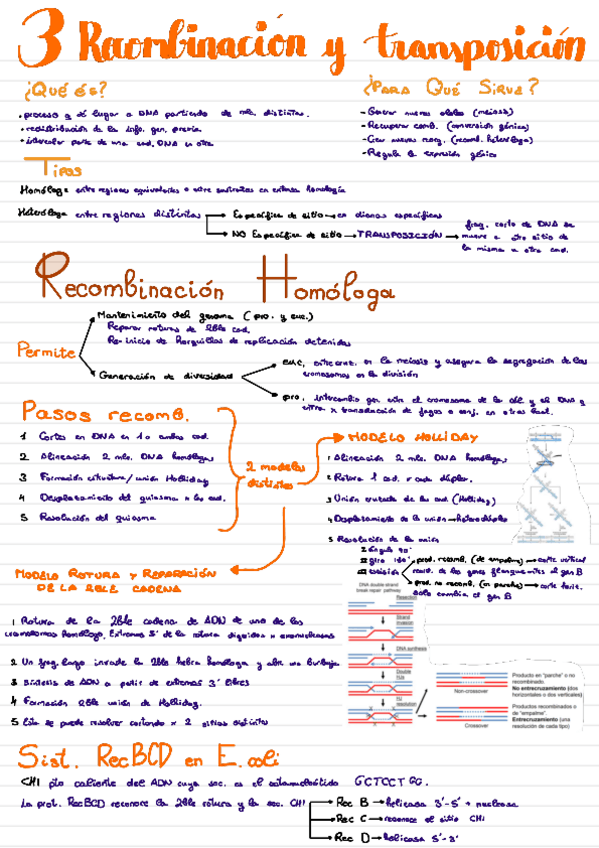 3 Recombinación y transposición
¿Qué és?
¿Para Qué Sirve?
· proceso q dá lugar a DNA partiendo de mlc. distintas.
· redistribución de la info. gen. previa
· intercalar parte de una cad. DNA en otra
- Generar nuevos alelos (meiosis)
- Recuperar comb. (conversión génica)
- Crear nuevas reorg. (recomb. heteróloga)
- Regula la expresión génica
Tipos
Homóloga entre regiones equivalentes o entre sustratos con extensa homología
Heteróloga entre regiones distintas
Específica de sitio en dianas específicas
NO Específica de sitio TRANSPOSICIÓN
frag. corto de DNA se
mueve a otro sitio de
la misma u otra cad.
Recombinación Homóloga
Permite
Mantenimiento del genoma (pro. y euc.)
Reparar roturas de 2ble cad.
Re-inicio de horquillas de replicación detenidas
Generación de diversidad
euc, entrecruz. en la meiosis y asegura la segregación de los
cromosomas en la división
pro, intercambio gen. entre el cromosoma de la cél. y el DNA q
entra x transducción de fagos o conj. en otras bact.
Pasos recomb.
1 Cortes en DNA en 1 o ambas cad.
2 Alineación 2 mlc. DNA homólogas
3 Formación estructura/unión Holliday
4 Desplazamiento del quiasma x las cad.
5 Resolución del quiasma
2 modelos
distintos
MODELO HOLLIDAY
1 Alineación 2 mlc. DNA homólogas
2 Rotura 1 cad. x cada dúplex.
3 Unión cruzada de las cad (Holliday)
4 Desplazamiento de la unión heterodúplex
5 Resolución de la unión
I Giro 90°
II giro 180°
III escisión
prod. recomb. (de empalme) corte vertical
recomb. de los genes flanqueantes al gen B
prod. no recomb. (en parche) corte horiz.
Solo cambia el gen B
MODELO ROTURA Y REPARACIÓN
DE LA 2BLE CADENA
1 Rotura de la 2ble cadena de ADN de uno de los
cromosomas homólogo. Extremos 5' de la rotura digeridos x exonucleasas
2 Un frag. largo invade la 2ble hebra homóloga y abre una burbuja
3 Síntesis de ADN a partir de extremos 3' libres
4 Formación 2ble unión de Holliday.
5 Esto se puede resolver cortando x 2 sitios distintos
DNA double strand
break repair pathway
Resection
Strand
invasion
DNA synthesis
Double
HJs
HJ
resolution
Non-crossover
Crossover
Producto en "parche" o no
recombinado.
No entrecruzamiento (dos
horizontales o dos verticales)
Productos recombinados o
de "empalme".
Entrecruzamiento (una
resolución de cada tipo)
Sist. RecBCD en E. coli
CHI pto caliente del ADN cuya sec. es el octanucleótido GCTGGTGG.
La prot. RecBCD reconoce la 2ble rotura y la sec. CHI
Rec B helicasa 3'-5' + nucleasa
Rec C reconoce el sitio CHI
Rec D helicasa 5'-3'